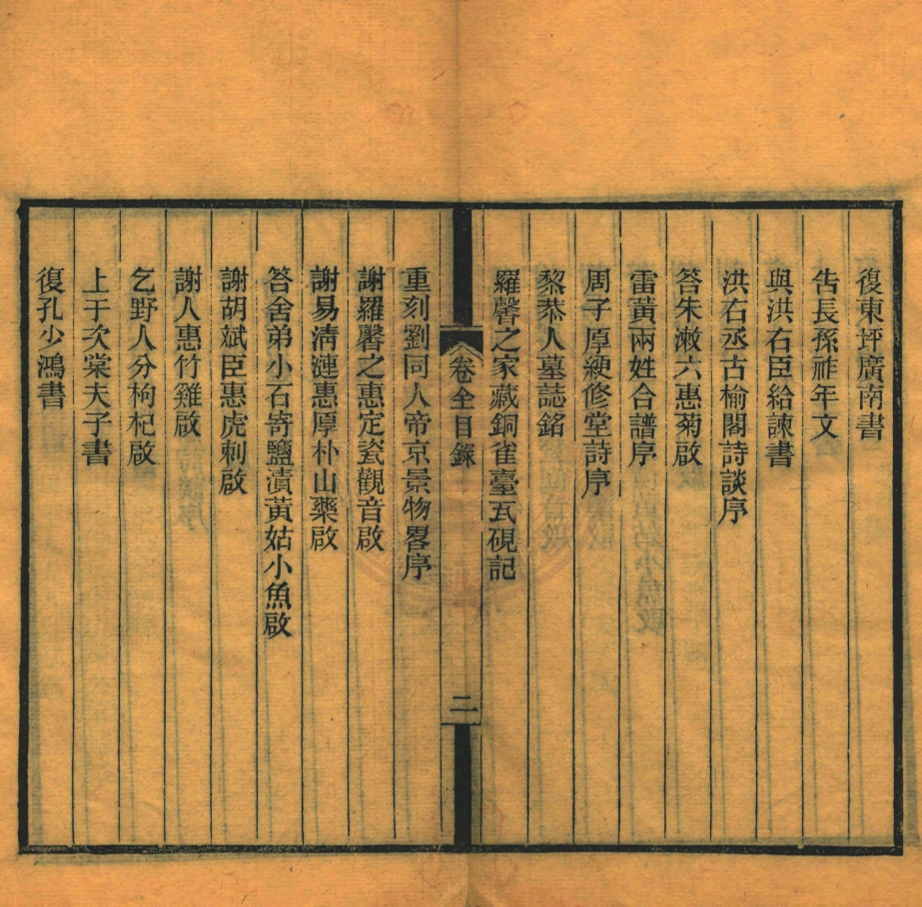 復東坪廣南書
告長孫祚年文
與洪右臣給諫書
洪右丞古榆閣詩談序
答朱漱六惠菊啟
雷黃兩姓合譜序
周子厚綆修堂詩序
黎恭人墓誌銘
羅馨之家藏銅雀臺瓦硯記
卷全目錄
二
重刻劉同人帝京景物畧序
謝羅馨之惠定瓷觀音啟
謝易淸漣惠厚朴山藥啟
答舍弟小石寄鹽漬黃姑小魚啟
謝胡斌臣惠虎刺啟
謝人惠竹雞啟
乞野人分枸杞啟
上于次棠夫子書
復孔少鴻書